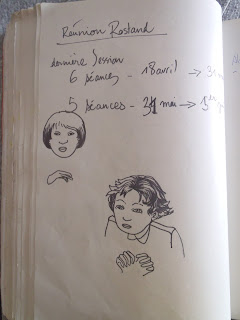 Réunion Rostand
dernière Session
6 séances - 18 avril → 3
5 séances - 31 mai → 1er